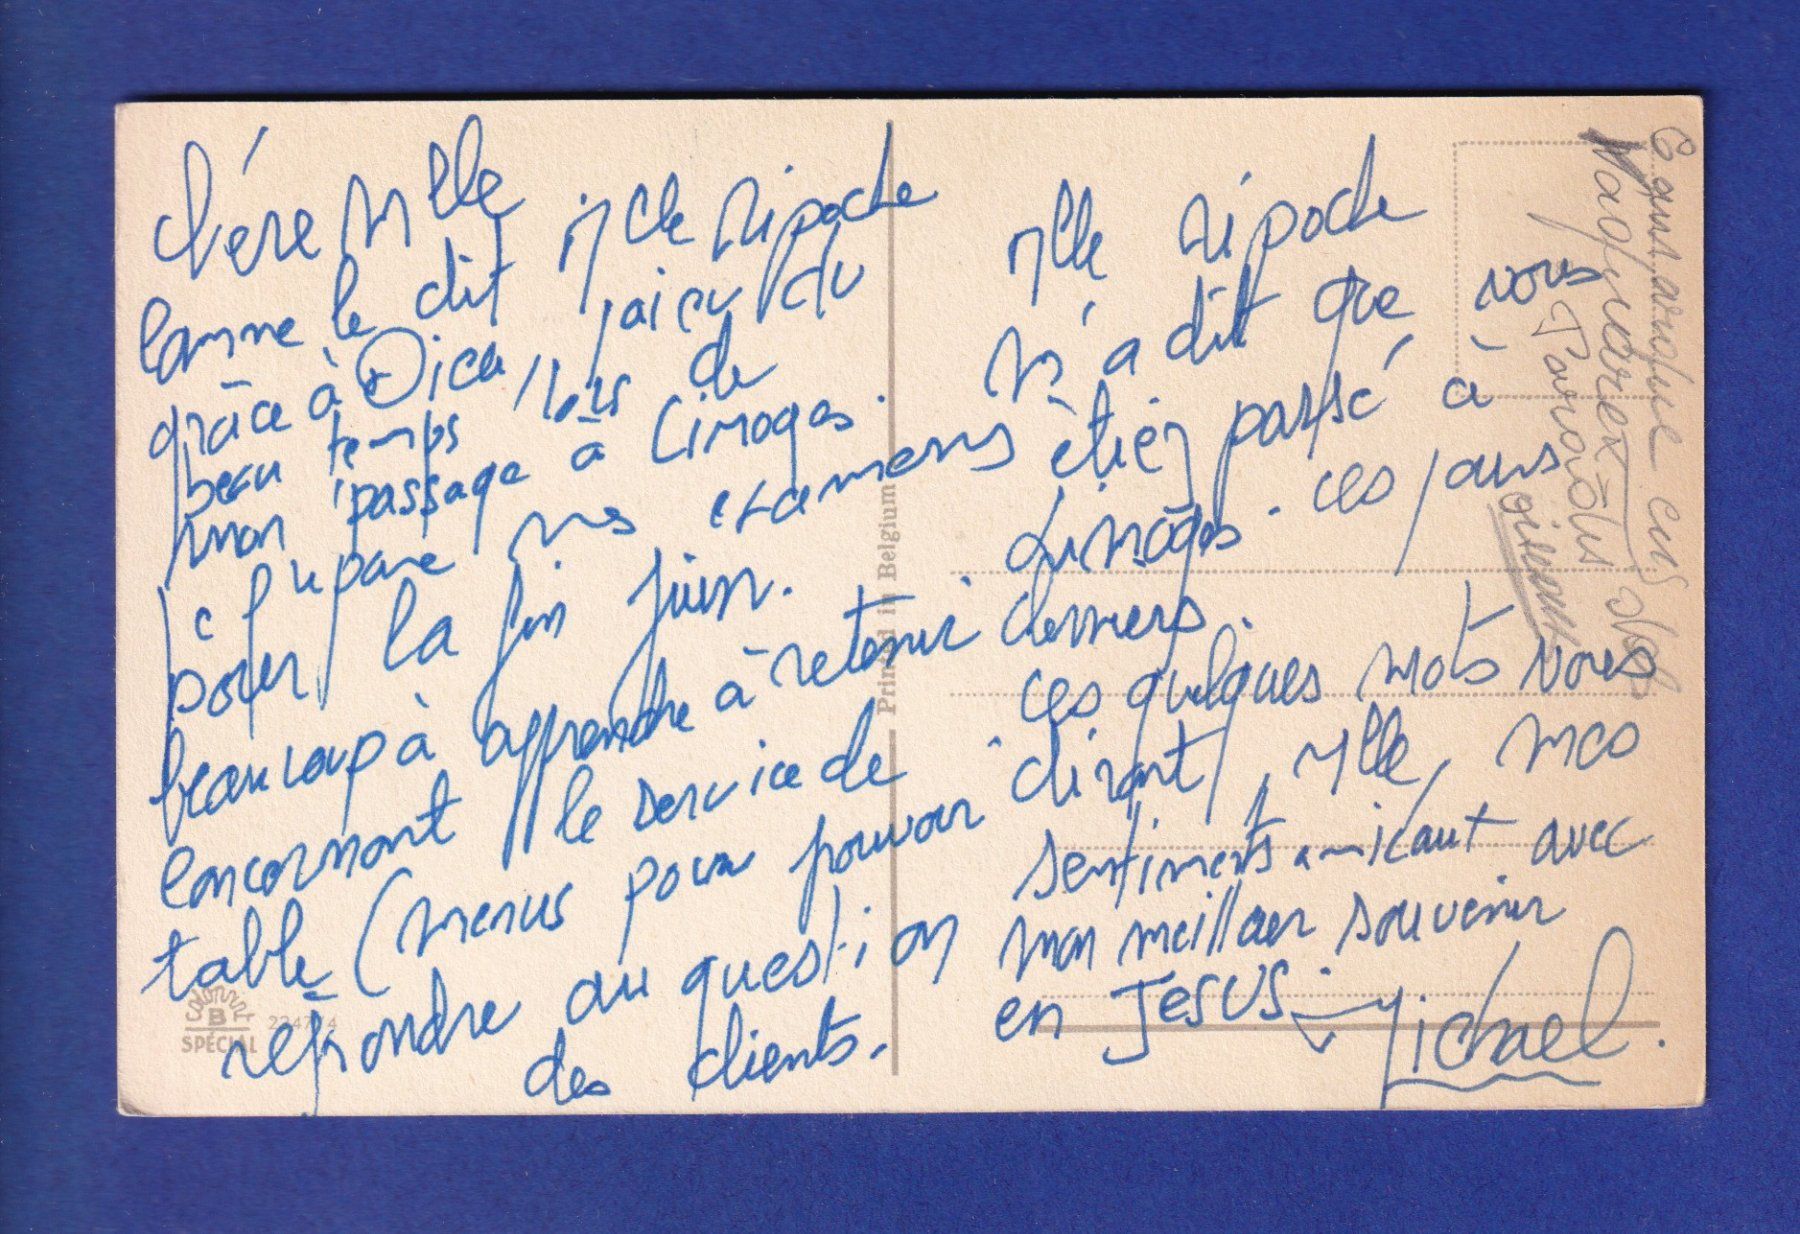 Chère Mlle
Comme le dit Mlle Ripoche
grâce à Dieu, j'ai eu du
beau temps lors de
mon passage à Limoges.
je prépare mes examens
pour la fin juin.
beaucoup à apprendre à retenir
concernant le service de
table (menus pour pouvoir
répondre au question
des clients.
Mlle Ripoche
M'a dit que vous
étiez passé à
Limoges. ces jours
derniers.
ces quelques mots vous
dirant, Mlle, mes
sentiments amicaut avec
mon meilleur souvenir
en Jesus. Michael.
Printed in Belgium
COLORPRINT
B
SPÉCIAL
22474